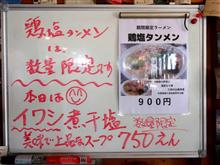 鶏塩タンメン
は
数量限定です
本日は
イワシ煮干塩
数量限定
美味で上品なスープ 750えん
期間限定ラーメン
鶏塩タンメン
900円